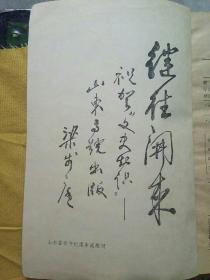 继往开来
祝贺《文史知识》—
山东专号出版
梁步庭